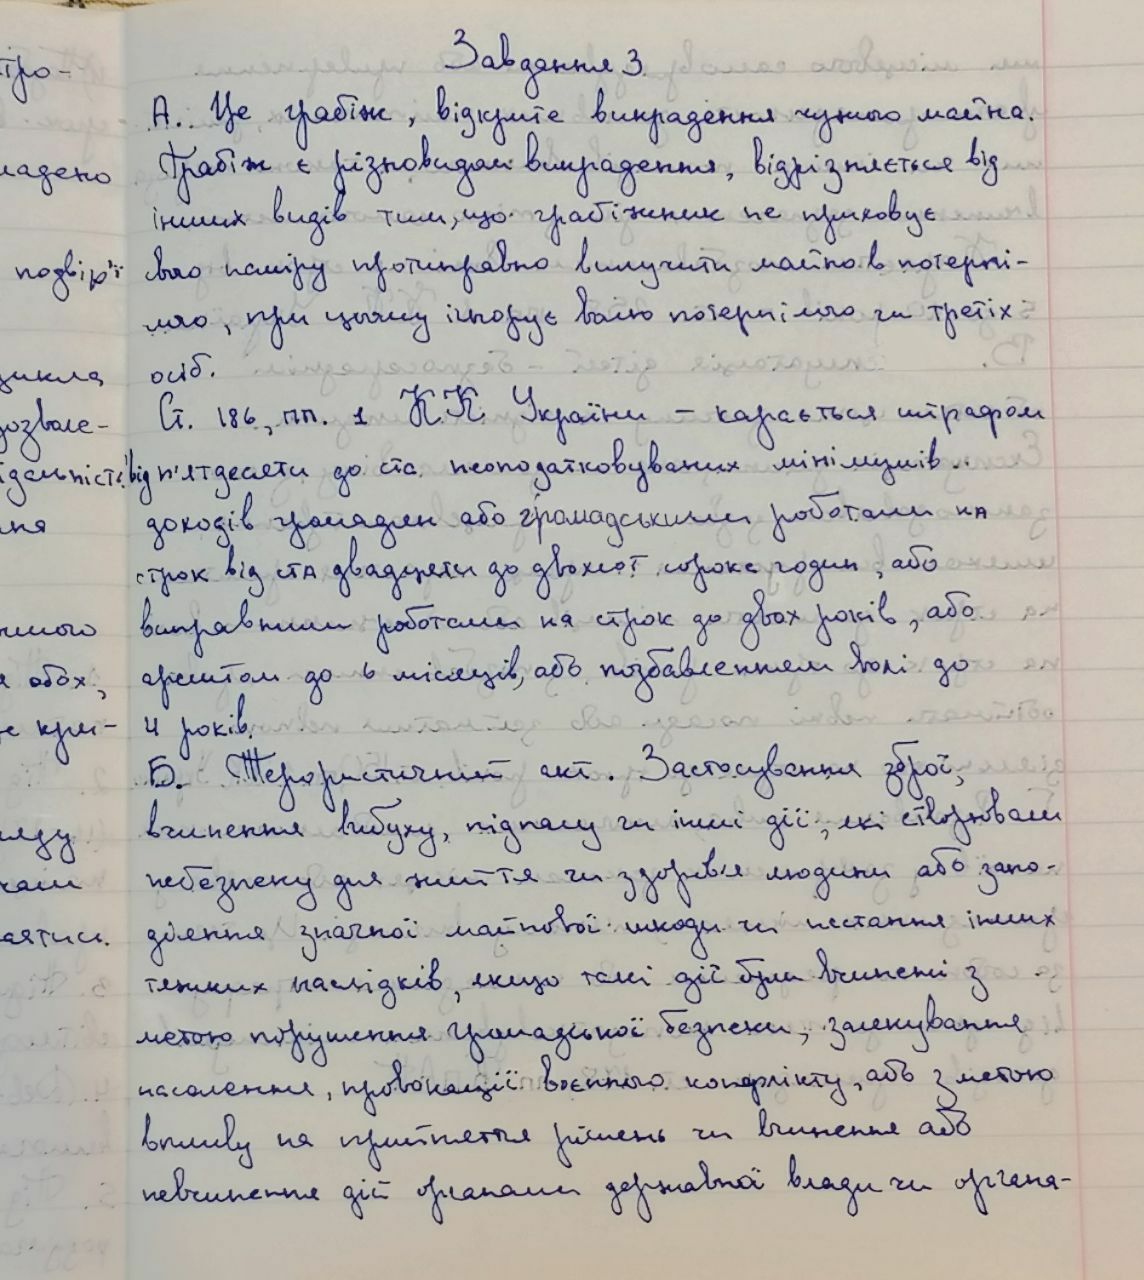 Завдання 3
А. Це грабіж, відкрите викрадення чужого майна.
Грабіж є різновидом викрадення, відрізняється від
інших видів тим, що грабіжник не приховує
свого наміру протиправно вилучити майно в потерпі-
лого, при цьому ігнорує волю потерпілого чи третіх
осіб.
Ст. 186, пп. 1 КК України – карається штрафом
від п'ятдесяти до ста неоподатковуваних мінімумів
доходів громадян або громадськими роботами на
строк від ста двадцяти до двохсот сорока годин, або
виправними роботами на строк до двох років, або
арештом до 6 місяців, або позбавленням волі до
4 років.
Б. Терористичний акт. Застосування зброї,
вчинення вибуху, підпалу чи інші дії, які створювали
небезпеку для життя чи здоров'я людини або запо-
діяння значної майнової шкоди чи настання інших
тяжких наслідків, якщо такі дії були вчинені з
метою порушення громадської безпеки, залякування
населення, провокації воєнного конфлікту, або з метою
впливу на прийняття рішень чи вчинення або
невчинення дій органами державної влади чи органа-
тро-
ладено
подвір'ї
цикла
дозволе-
ідальність
ння
обох,
кри-